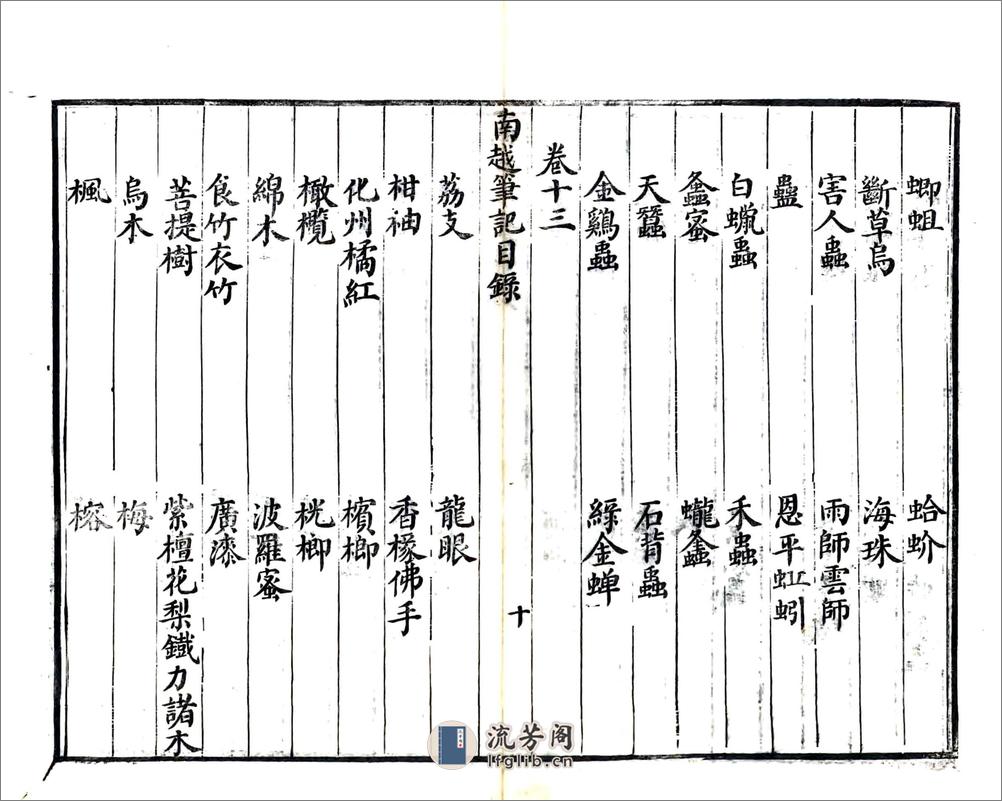 蝍蛆 蛤蚧
斷草烏 海珠
害人蟲 雨師雲師
蠱 恩平虹蚓
白蠟蟲 禾蟲
蜜 蠬
天蠶 石背蟲
金鷄蟲 綠金蟬
卷十三
南越筆記目錄 十
荔支 龍眼
柑柚 香櫞佛手
化州橘紅 檳榔
橄欖 桄榔
綿木 波羅蜜
食竹衣竹 廣漆
菩提樹 紫檀花梨鐵力諸木
烏木 梅
楓 榕
流芳阁
lfglib.cn